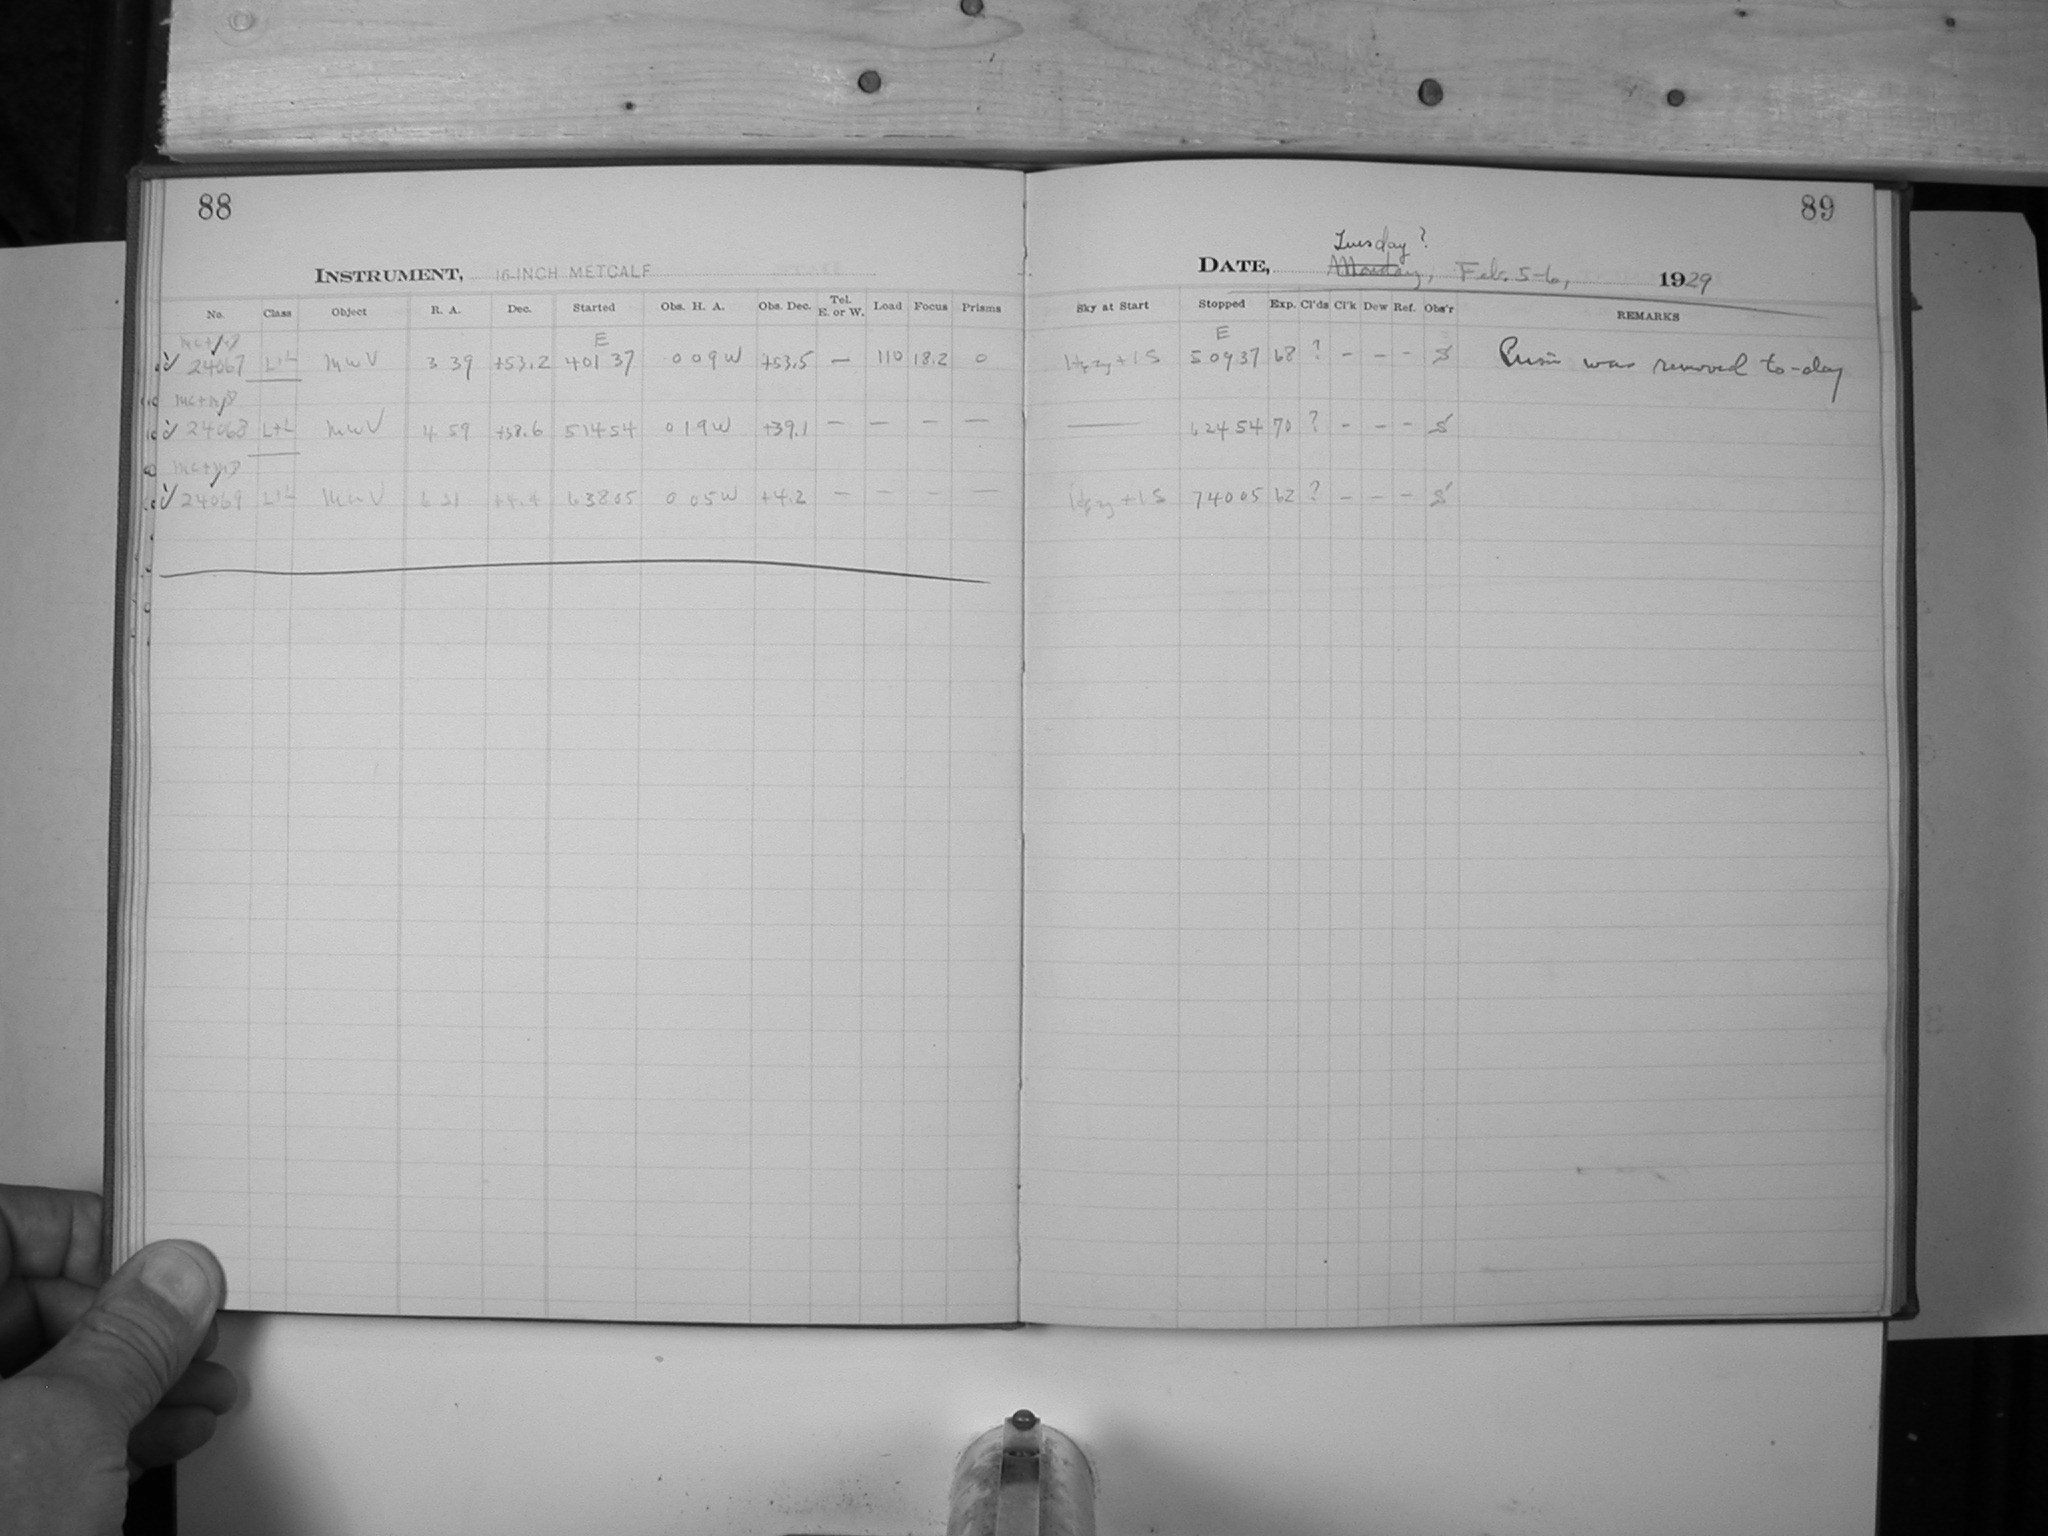 88
INSTRUMENT, 16-INCH METCALF
No. Class Object R. A. Dec. Started Obs. H. A. Obs. Dec. Tel. E. or W. Load Focus Prisms
E
24067 L+L MWV 3 39 +53.2 4 01 37 0 09 W +53.5 — 110 18.2 0
24068 L+L MWV 4 59 +38.6 5 14 54 0 19 W +39.1 — — — —
24069 L+L MWV 6 21 +4.4 6 38 05 0 05 W +4.2 — — — —
89
Tuesday?
DATE, Monday, Feb. 5-6, 1929
Sky at Start Stopped Exp. Cl'ds Cl'k Dew Ref. Obs'r REMARKS
E
Hazy + 1 S 5 09 37 68 ? – – – S Prism was removed to-day
—— 6 24 54 70 ? – – – S
Hazy + 1 S 7 40 05 62 ? – – – S